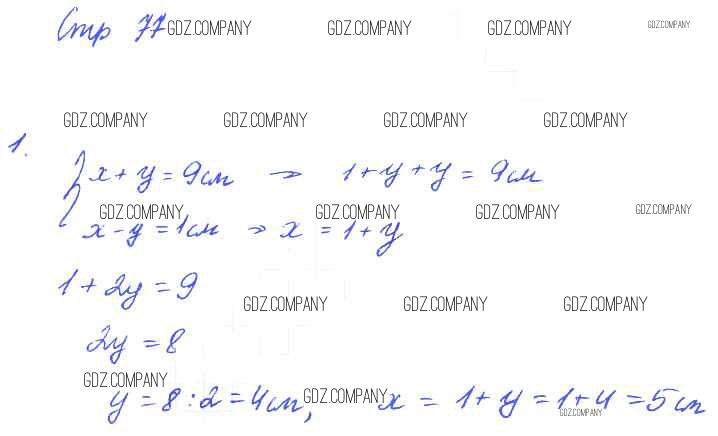 Стр 77 GDZ.COMPANY GDZ.COMPANY GDZ.COMPANY GDZ.COMPANY
GDZ.COMPANY GDZ.COMPANY GDZ.COMPANY GDZ.COMPANY
1.
{ x + y = 9см → 1 + y + y = 9см
GDZ.COMPANY GDZ.COMPANY GDZ.COMPANY GDZ.COMPANY
x - y = 1см → x = 1 + y
1 + 2y = 9
GDZ.COMPANY GDZ.COMPANY GDZ.COMPANY
2y = 8
GDZ.COMPANY GDZ.COMPANY GDZ.COMPANY
y = 8 : 2 = 4см, x = 1 + y = 1 + 4 = 5см